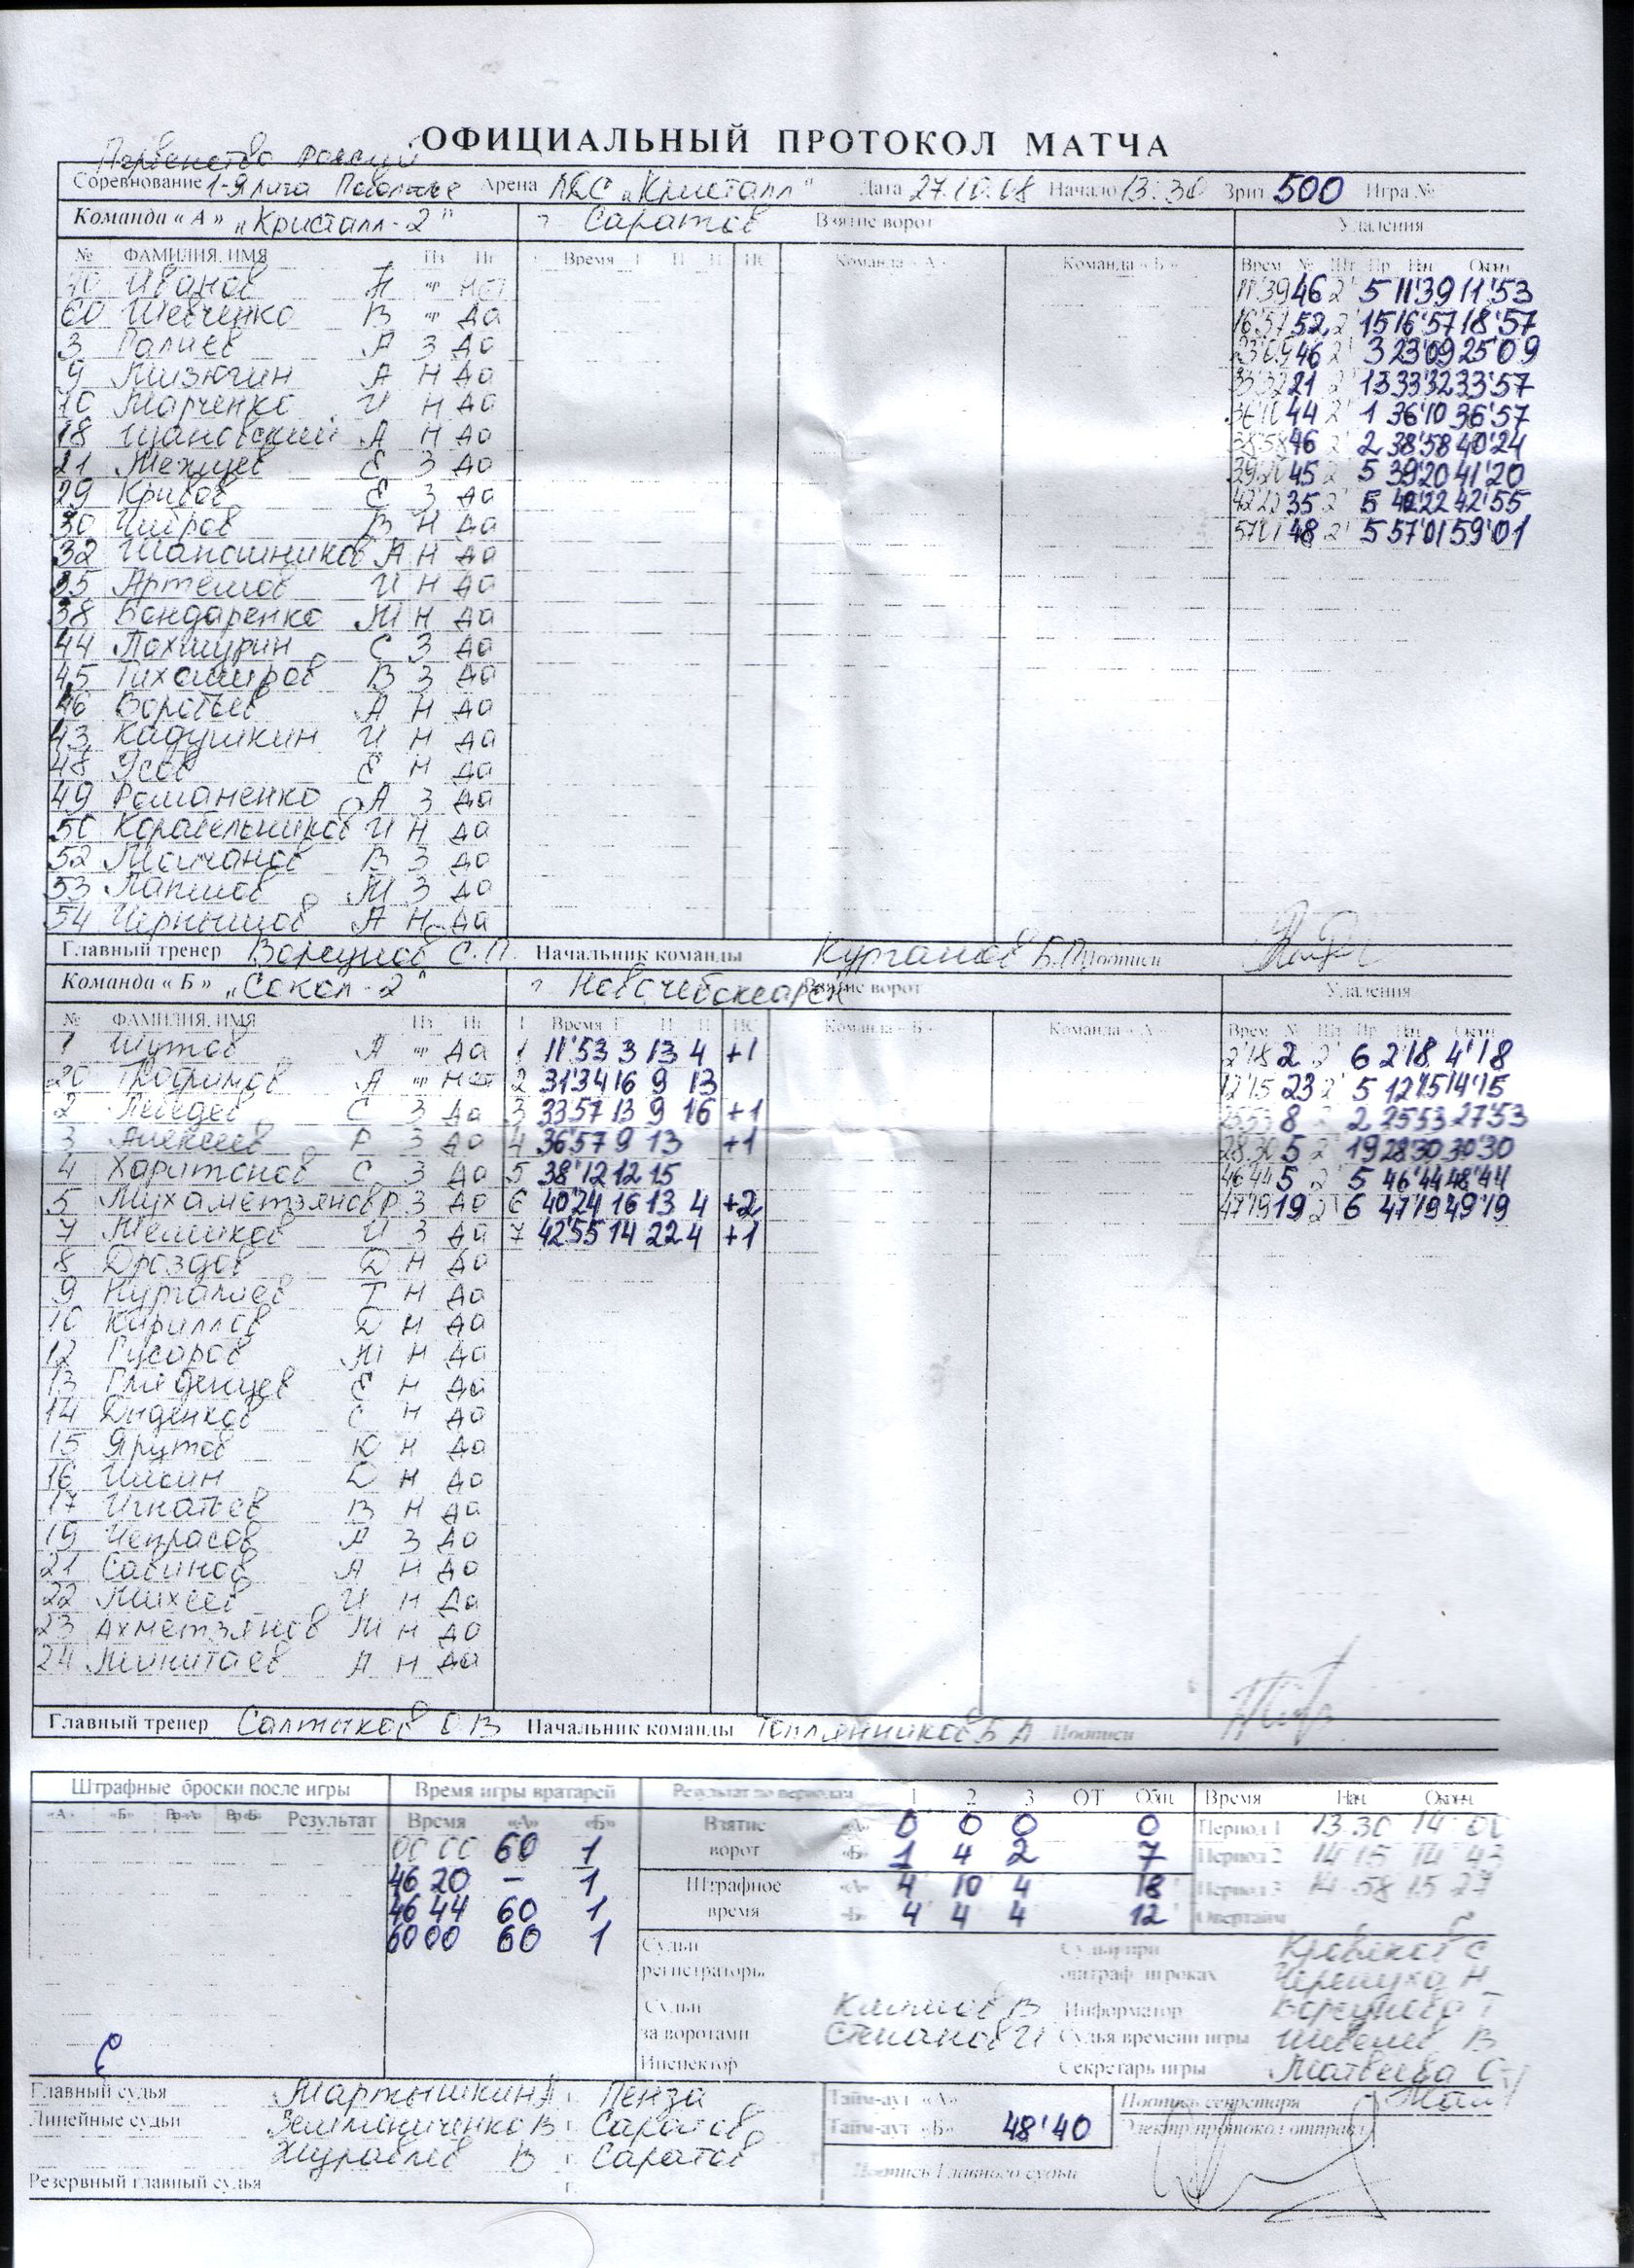 ОФИЦИАЛЬНЫЙ ПРОТОКОЛ МАТЧА
Первенство России
Соревнование 1-я лига Поволжье Арена ЛДС „Кристалл" Дата 27.10.08 Начало 13:30 Зрит 500 Игра №
Команда « А » „Кристалл-2" г. Саратов Взятие ворот Удаления
№ ФАМИЛИЯ, ИМЯ Пз Иг Время Г П П ИС Команда «А» Команда «Б» Врем № Шт Пр Нч Окнч
Иванов А нет 11'39 46 2' 5 11'39 11'53
60 Шевченко В да 16'57 52 2' 15 16'57 18'57
3 Галиев А З да 23'09 46 2' 3 23'09 25'09
9 Мизюгин А Н да 33'32 21 2' 13 33'32 33'57
10 Марченко И Н да 36'10 44 2' 1 36'10 36'57
18 А Н да 38'58 46 2' 2 38'58 40'24
21 Е З да 39'20 45 2' 5 39'20 41'20
29 Кривов Е З да 42'22 35 2' 5 42'22 42'55
30 В Н да 57'01 48 2' 5 57'01 59'01
32 Шапошников А Н да
35 Артёмов И Н да
38 Бондаренко М Н да
44 С З да
45 Тихомиров В З да
46 Воротьев А Н да
43 Кадушкин И Н да
48 Усов Е Н да
49 Романенко А З да
50 Корабельников И Н да
52 Молчанов В З да
53 Лапшов М З да
54 Чернышов А Н да
Главный тренер С.П. Начальник команды Курганов Б.П. Подписи
Команда « Б » „Сокол-2" г. Новочебоксарск Взятие ворот Удаления
№ ФАМИЛИЯ, ИМЯ Пз Иг Г Время Г П П ИС Команда «Б» Команда «А» Врем № Шт Пр Нч Окнч
1 Шутов А да 1 11'53 3 13 4 +1 2'18 2 2' 6 2'18 4'18
20 Трофимов А нет 2 31'34 16 9 13 12'15 23 2' 5 12'15 14'15
2 Лебедев С З да 3 33'57 13 9 16 +1 25'53 8 2 25'53 27'53
3 Алексеев Р З да 4 36'57 9 13 +1 28'30 5 2' 19 28'30 30'30
4 Харитонов С З да 5 38'12 12 15 46'44 5 2' 5 46'44 48'44
5 Мухаметзянов Р З да 6 40'24 16 13 4 +2 47'19 19 2' 6 47'19 49'19
7 Мешков И З да 7 42'55 14 22 4 +1
8 Дроздов Д Н да
9 Нургалиев Т Н да
10 Кириллов Д Н да
12 Гусаров М Н да
13 Е Н да
14 Диденков С Н да
15 Ярутов Ю Н да
16 Д Н да
17 Игнатьев В Н да
19 Чепрасов А З да
21 Сабинов А Н да
22 Михеев И Н да
23 Ахметзянов М Н да
24 А Н да
Главный тренер Салтыков О В Начальник команды Топлянников Б А Подписи
Штрафные броски после игры Время игры вратарей Результат по периодам 1 2 3 ОТ Общ Время Нач Оконч
«А» «Б» Вр«А» Вр«Б» Результат Время «А» «Б» Взятие «А» 0 0 0 0 Период 1 13 30 14 00
00 00 60 1 ворот «Б» 1 4 2 7 Период 2 14 15 14 43
46 20 – 1 Штрафное «А» 4 10 4 18 Период 3 14 58 15 27
46 44 60 1 время «Б» 4 4 4 12 Овертайм
60 00 60 1
Судьи регистраторы Судьи при штраф. игроках С
Черемуха Н
Судьи В Информатор Т
за воротами Степанов И Судья времени игры В
Инспектор Секретарь игры Матвеева С
Главный судья Мартышкин А г. Пенза Тайм-аут «А» Подпись секретаря
Линейные судьи Землянниченко В г. Саратов Тайм-аут «Б» 48'40 Электр протокол отправл
Журавлев В г. Саратов Подпись Главного судьи
Резервный главный судья г.